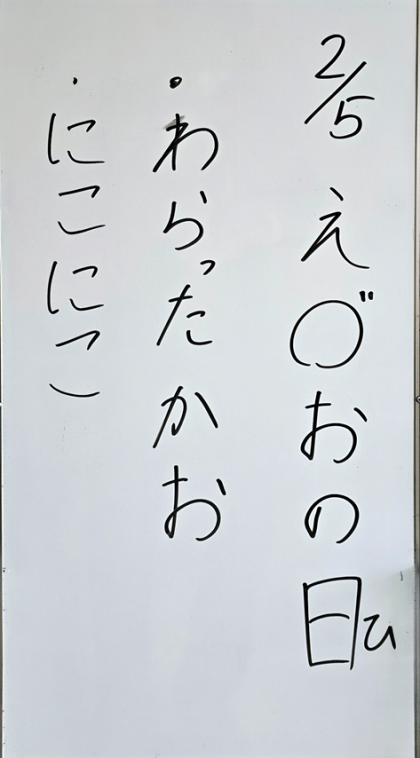 2/5 え〇゛おの日ひ
・わらったかお
・にこにこ